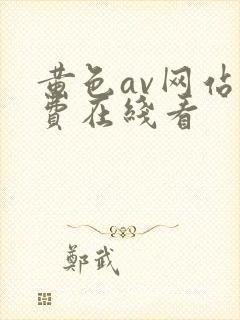 黄色av网佔
費在綫看
鄭武